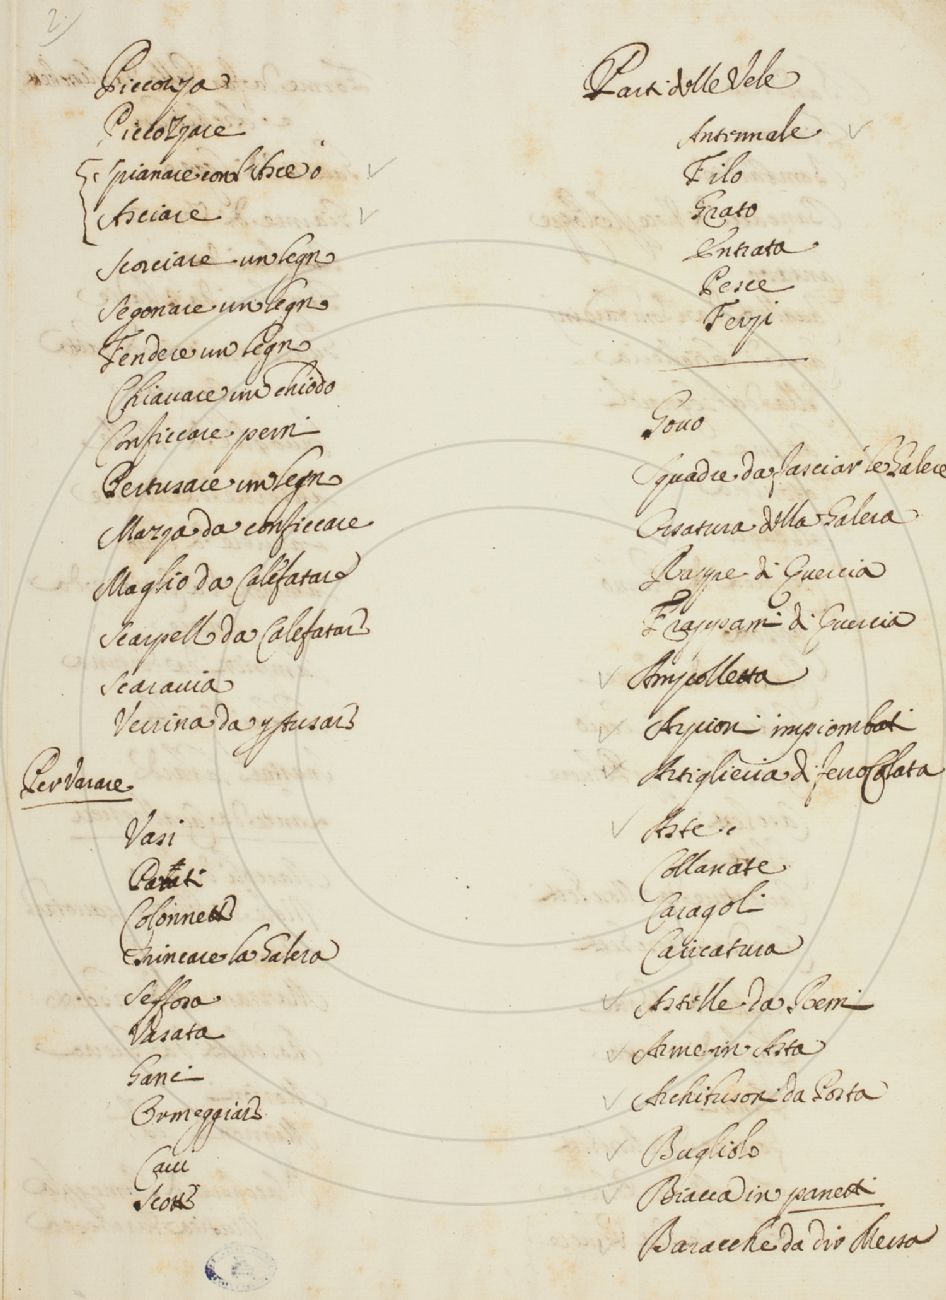 2
Piccozza
Piccozzare
Spianare con l'Asce ò
Asciare
Scorciare un legno
Segonare un legno
Fendere un legno
Chiavare un chiodo
Conficcare perni
Pertusare un legno
Mazza da conficcare
Maglio da Calefatare
Scarpello da Calefatare
Scaravia
Verrina da pertusare
Per Varare
Vasi
Parati
Colonnette
Trincare la Galera
Seffosa
Vasata
Ganci
Ormeggiare
Cavi
Scotte
Parti delle Vele
Antennale
Filo
Grato
Entrata
Pesce
Ferzi
Govo
Squadre da fasciar le Galere
Orsatura della Galera
Rappe di Quercia
Frappami di Quercia
Ampolletta
Arpioni impiombati
Artiglieria di ferro Colata
Aste
Collanate
Caragoli
Caricatura
Astelle da Remi
Arme in Asta
Archibusoni da Posta
Bugliolo
Biacca in panetti
Baracche da dir Messa